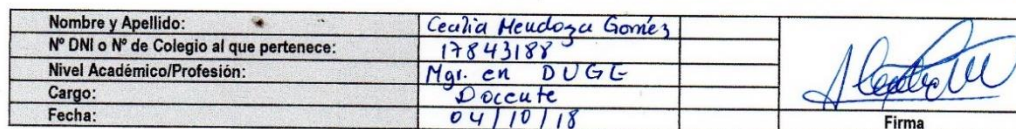 Nombre y Apellido: Cecilia Mendoza Gomez
Nº DNI o Nº de Colegio al que pertenece: 17843188
Nivel Académico/Profesión: Mgr. en DUGE
Cargo: Docente
Fecha: 04/10/18
Firma